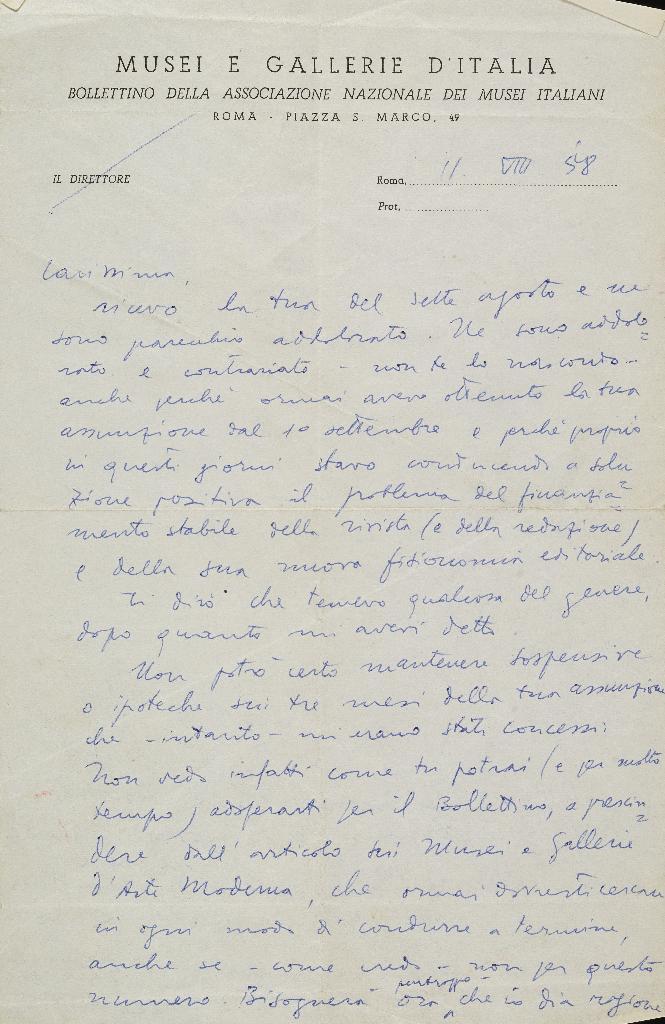 MUSEI E GALLERIE D'ITALIA
BOLLETTINO DELLA ASSOCIAZIONE NAZIONALE DEI MUSEI ITALIANI
ROMA - PIAZZA S. MARCO, 49
IL DIRETTORE
Roma, 11 VIII 58
Prot.
Carissima,
ricevo la tua del sette agosto e ne
sono parecchio addolorato. Ne sono addolo=
rato e contrariato - non te lo nascondo -
anche perché ormai avevo ottenuto la tua
assunzione dal 1° settembre e perché proprio
in questi giorni stavo conducendo a solu=
zione positiva il problema del finanzia=
mento stabile della rivista (e della redazione)
e della sua nuova fisionomia editoriale.
Ti dirò che temevo qualcosa del genere,
dopo quanto mi avevi detto.
Non potrò certo mantenere sospensive
o ipoteche sui tre mesi della tua assunzione
che - intanto - mi erano stati concessi.
Non vedo infatti come tu potrai (e per molto
tempo) adoperarti per il Bollettino, a prescin=
dere dall'articolo sui Musei e Gallerie
d'Arte Moderna, che ormai dovresti cercare
in ogni modo di condurre a termine,
anche se - come credo - non per questo
numero. Bisognerà purtroppo ora che io dia ragione